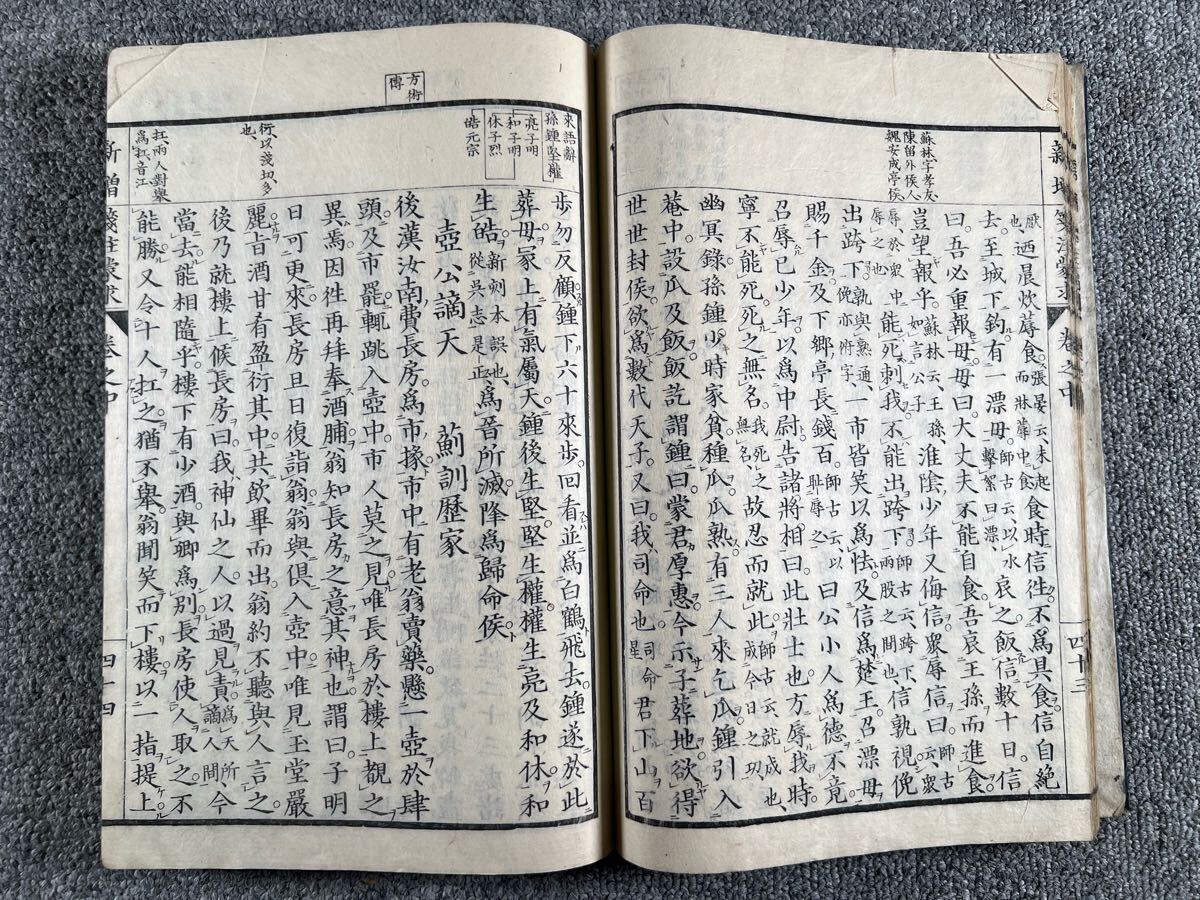 蘇林字孝友
陳留外侯人
魏安成亭侯
厭也迺晨炊蓐食張晏云未起而牀蓐中食食時信往不為具食信自絶
去至城下釣有一漂母師古云以水擊絮曰漂哀之飯信數十日信
曰吾必重報母母曰大丈夫不能自食吾哀王孫而進食
豈望報乎蘇林云王孫如言公子淮陰少年又侮信眾辱信曰師古云眾
辱於眾中辱之也能死刺我不能出跨下師古云跨下兩股之間也信孰視俛
出跨下孰與熟通俛亦俯字一市皆笑以為怯及信為楚王召漂母
賜千金及下鄉亭長錢百師古云以恥辱之曰公小人為德不竟
召辱已少年以為中尉告諸將相曰此壯士也方辱我時
寧不能死死之無名我死之無名故忍而就此師古云就成也成今日之功
幽冥錄孫鍾少時家貧種瓜瓜熟有三人來乞瓜鍾引入
菴中設瓜及飯飯訖謂鍾曰蒙君厚惠今示子葬地欲得
世世封侯欲為數代天子又曰我司命也司命星君下山百
方術傳
來語辭
孫鍾堅權
亮子明
和子明
休子烈
皓元宗
步勿反顧鍾下六十來步回看並為白鶴飛去鍾遂於此
葬母冢上有氣屬天鍾後生堅堅生權權生亮及和休和
生皓從吳志是正新刻本誤也為晉所滅降為歸命侯
壺公謫天 薊訓歷家
後漢汝南費長房為市掾市中有老翁賣藥懸一壺於肆
頭及市罷輒跳入壺中市人莫之見唯長房於樓上覩之
異焉因往再拜奉酒脯翁知長房之意其神也謂曰子明
日可更來長房旦日復詣翁翁與俱入壺中唯見玉堂嚴
麗旨酒甘肴盈衍其中共飲畢而出翁約不聽與人言之
後乃就樓上候長房曰我神仙之人以過見責為天所謫人間今
當去能相隨乎樓下有少酒與卿為別長房使人取之不
能勝又令十人扛之猶不舉翁聞笑而下樓以一指提上
衍以淺切多
也
扛兩人對舉
為扛音江
卷之中
四十三
四十四